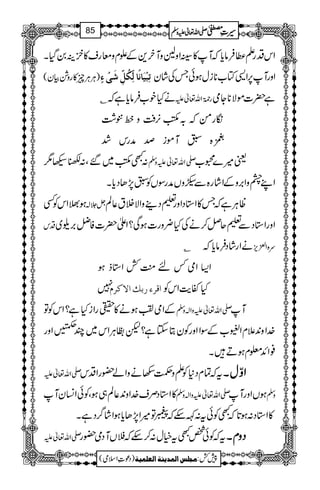 سیرتِ مصطفیٰ صلی اللہ تعالیٰ علیہ وسلم 85
اس قدر علم عطا فرمایا کہ آپ کا سینہ اولین و آخرین کے علوم و معارف کا خزینہ بن گیا۔
اور آپ پر ایسی کتاب نازل ہوئی جس کی شان تِبْیَانًا لِّكُلِّ شَیْءٍ (ہر ہر چیز کا روشن بیان)
ہے حضرت مولانا جامی رحمۃ اللہ تعالیٰ علیہ نے کیا خوب فرمایا ہے کہ
نگار من کہ بہ مکتب نرفت و خط ننوشت
بغمزہ سبق آموز صد مدرس شد
یعنی میرے محبوب صلی اللہ تعالیٰ علیہ وسلم نہ کبھی مکتب میں گئے، نہ لکھنا سیکھا مگر
اپنے چشم و ابرو کے اشارہ سے سیکڑوں مدرسوں کو سبق پڑھا دیا۔
ظاہر ہے کہ جس کا استاد اور تعلیم دینے والا خلاق عالم جل جلالہ ہو بھلا اس کو کسی
اور استاد سے تعلیم حاصل کرنے کی کیا ضرورت ہوگی؟ اعلیٰ حضرت فاضل بریلوی قدس
سرہ العزیز نے ارشاد فرمایا کہ
ایسا امی کس لئے منت کش استاذ ہو
کیا کفایت اس کو اقرء ربك الاكرم نہیں
آپ صلی اللہ تعالیٰ علیہ والہ وسلم کے امی لقب ہونے کا حقیقی راز کیا ہے؟ اس کو تو
خداوند علام الغیوب کے سوا اور کون بتا سکتا ہے؟ لیکن بظاہر اس میں چند حکمتیں اور
فوائد معلوم ہوتے ہیں۔
اوّل۔ یہ کہ تمام دنیا کو علم و حکمت سکھانے والے حضور اقدس صلی اللہ تعالیٰ علیہ
وسلم ہوں اور آپ صلی اللہ تعالیٰ علیہ والہ وسلم کا استاد صرف خداوند عالم ہی ہو، کوئی انسان آپ
کا استاد نہ ہو تا کہ کبھی کوئی یہ نہ کہہ سکے کہ پیغمبر تو میرا پڑھایا ہوا شاگرد ہے۔
دوم۔ یہ کہ کوئی شخص کبھی یہ خیال نہ کر سکے کہ فلاں آدمی حضور صلی اللہ تعالیٰ علیہ
پیش کش: مجلس المدينة العلمية (دعوتِ اسلامی)